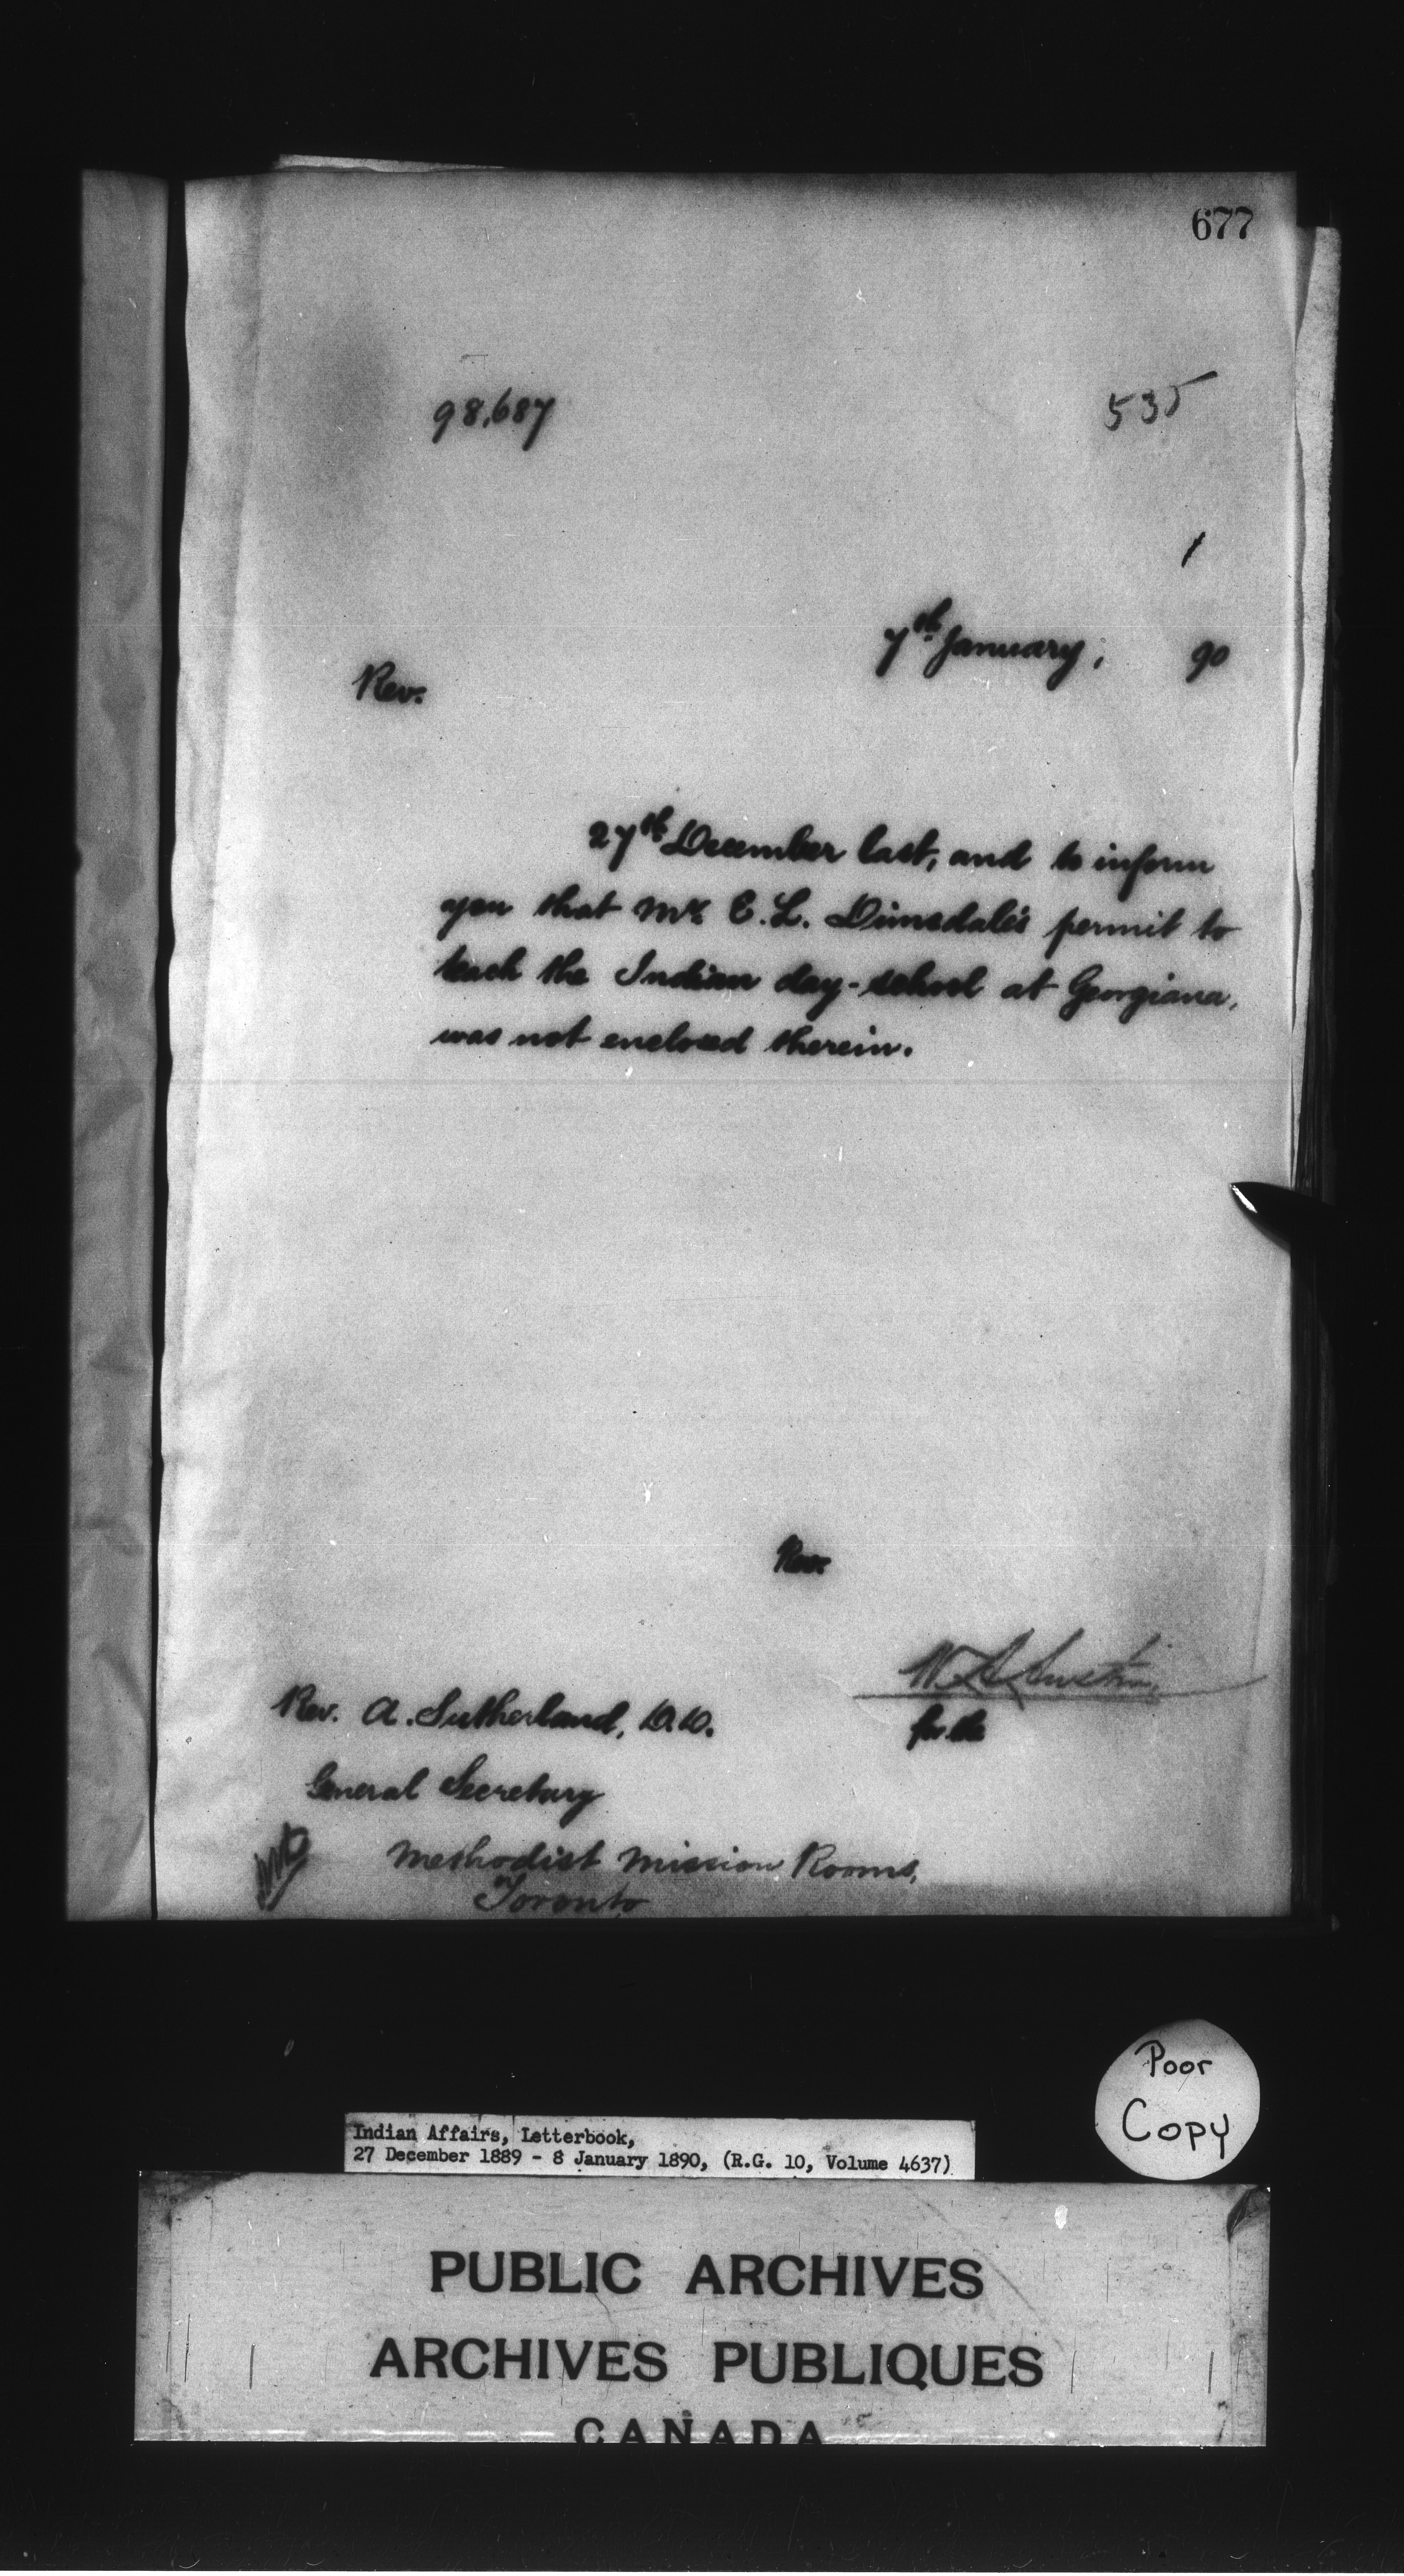 677
98,687
535
1
7th January, 90
Rev.
27th December last, and to inform
you that Mr. E. L. Dimsdale's permit to
teach the Indian day-school at Georgiana,
was not enclosed therein.
Rev.
W A Austin,
for the
Rev. A. Sutherland, D.D.
General Secretary
Methodist Mission Rooms,
Toronto
Poor
Copy
Indian Affairs, Letterbook,
27 December 1889 - 8 January 1890, (R.G. 10, Volume 4637)
PUBLIC ARCHIVES
ARCHIVES PUBLIQUES
CANADA